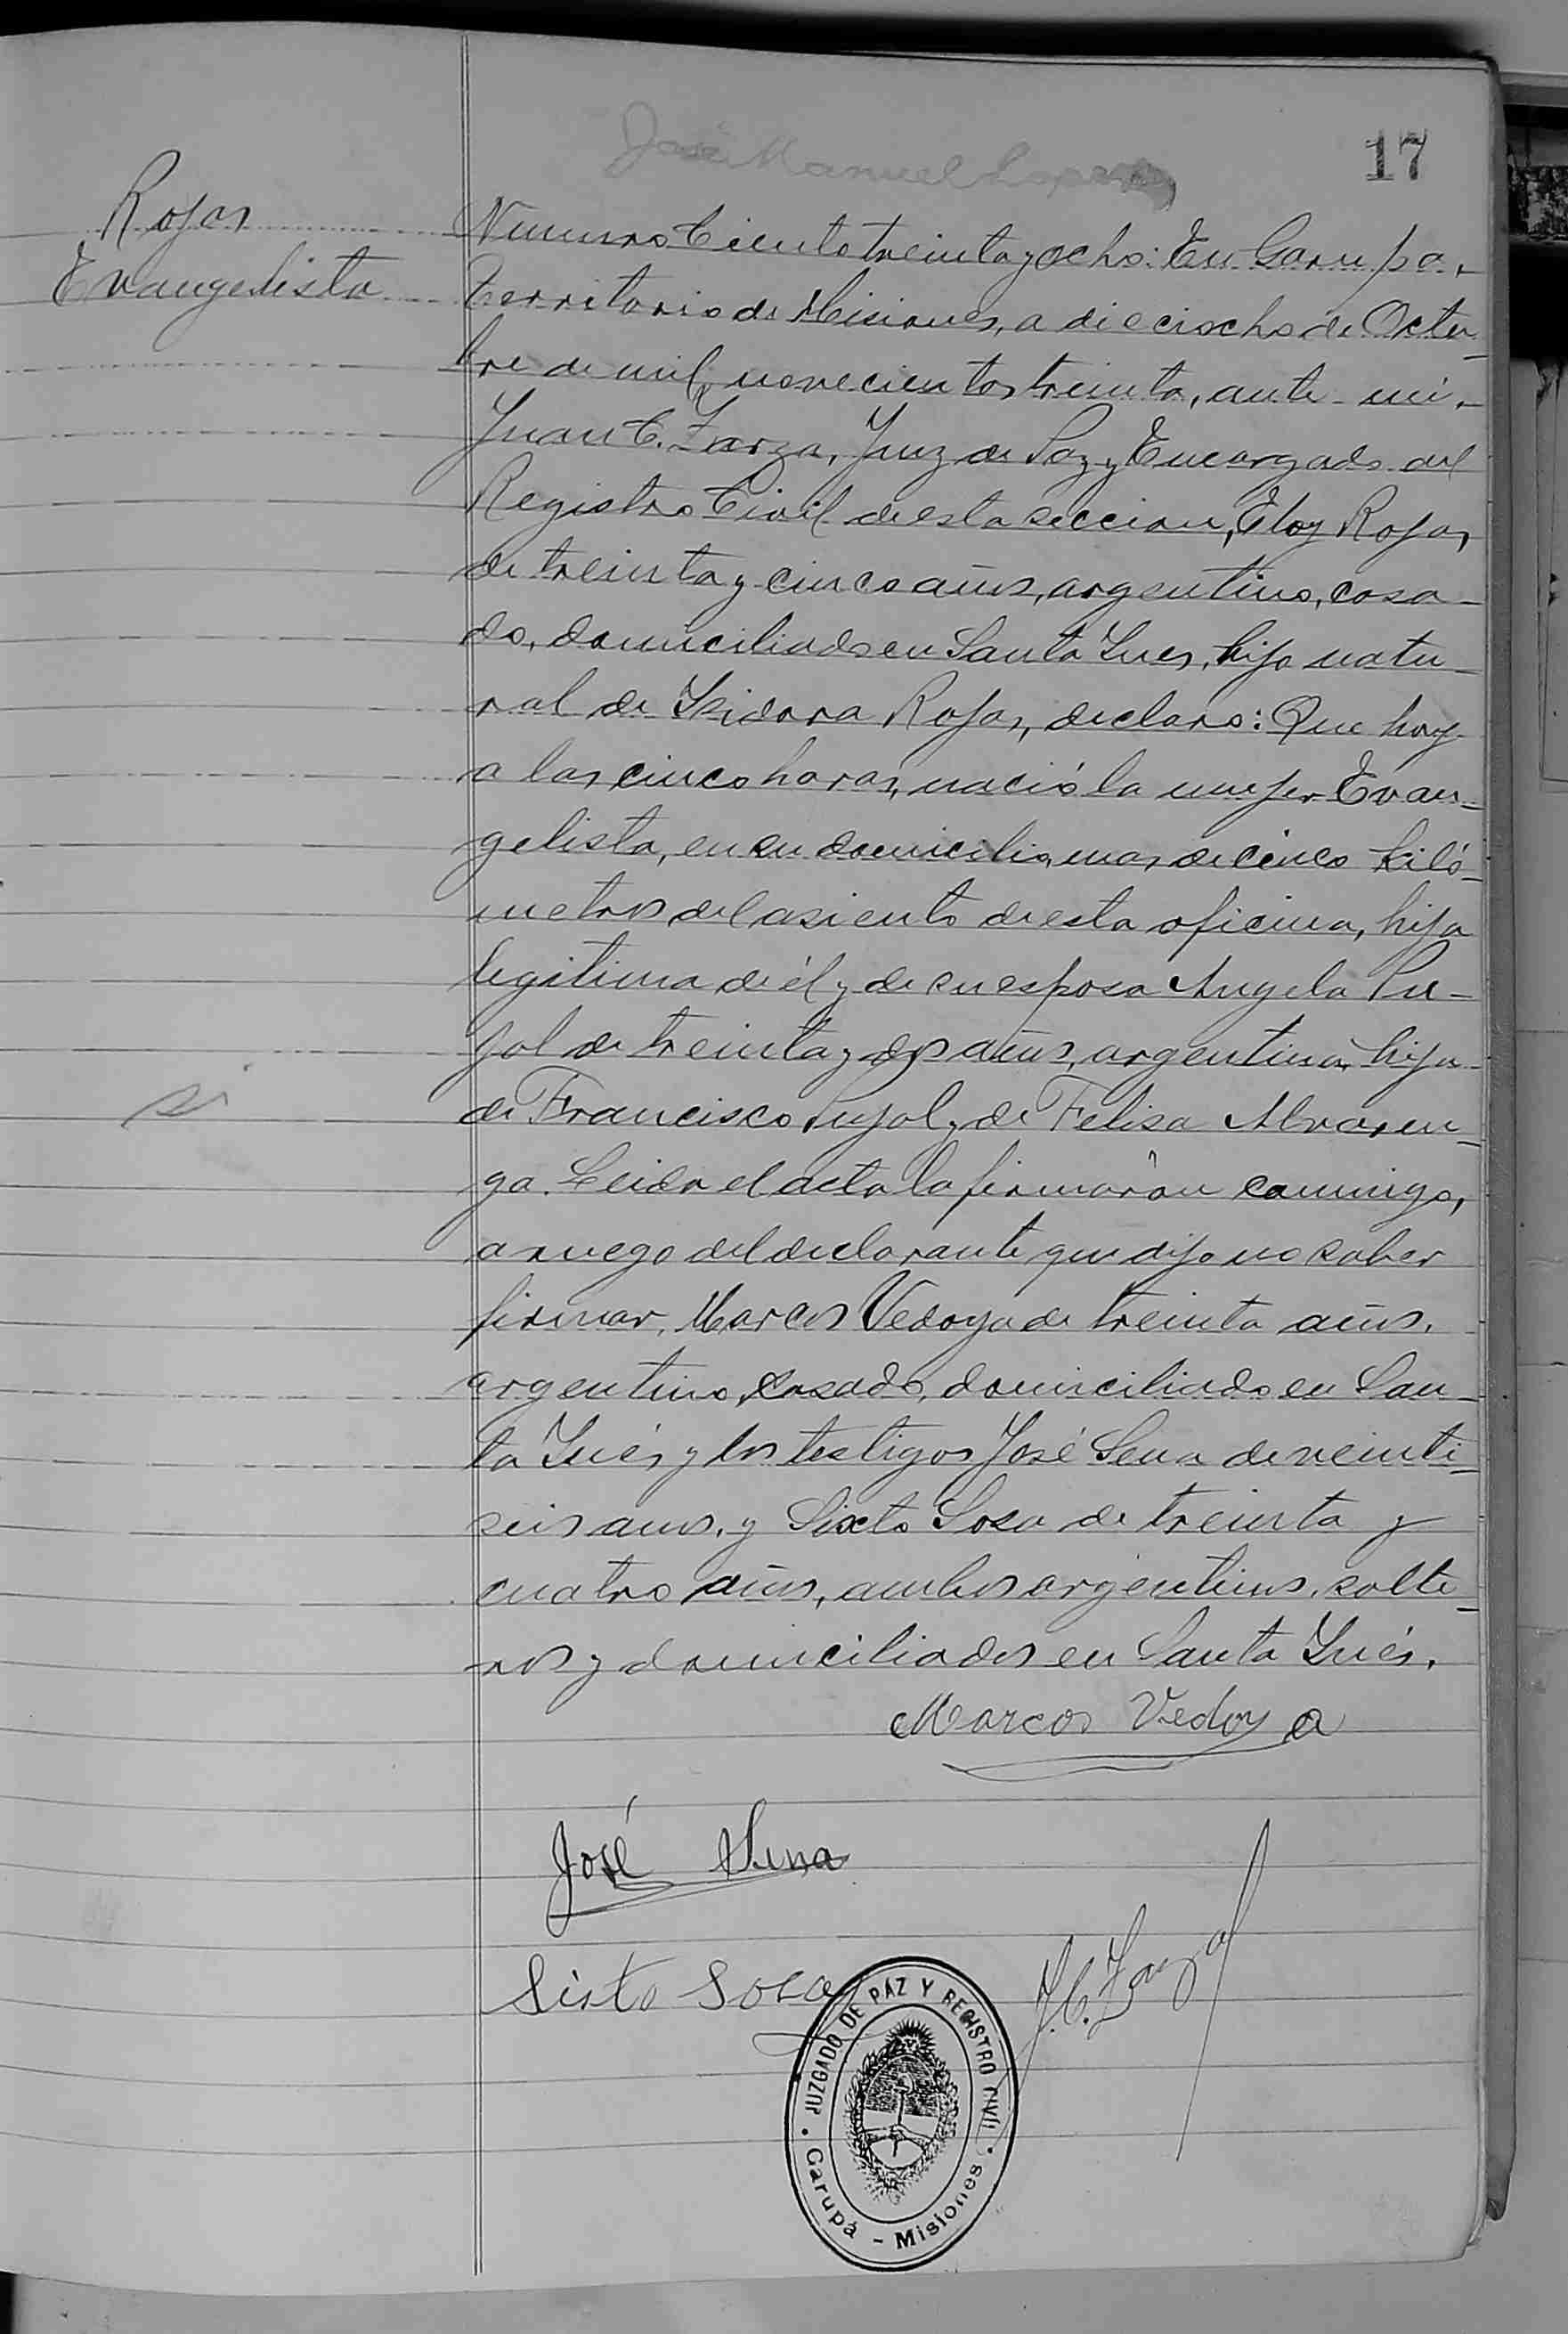 17
José Manuel
Rojas
Evangelista
Numero Ciento treinta y ocho: En Garupa,
Territorio de Misiones, a dieciocho de Octu-
bre de mil novecientos treinta, ante mi,
Juan C. Zarza, Juez de Paz y Encargado del
Registro Civil de esta seccion, Eloy Rojas,
de treinta y cinco años, argentino, casa-
do, domiciliado en Santa Ines, hijo natu-
ral de Ysidora Rojas, declaro: Que hoy
a las cinco horas, nació la mujer Evan-
gelista, en su domicilio, mas de cinco kiló-
metros del asiento de esta oficina, hija
legitima de él y de su esposa Angela Pu-
jol de treinta y dos años, argentina, hija
de Francisco Pujol y de Felisa Alvaren-
ga. Leida el acta la firmaron conmigo,
a ruego del declarante que dijo no saber
firmar, Marcos Vedoya de treinta años,
argentino, casado, domiciliado en San-
ta Inés y los testigos José Sena de veinti-
seis anos, y Sixto Sosa de treinta y
cuatro años, ambos argentinos, solte-
ros y domiciliados en Santa Inés.
si
Marcos Vedoya
José Sena
Sisto Sosa
J. C. Zarza
JUZGADO DE PAZ Y REGISTRO CIVIL
Garupá - Misiones